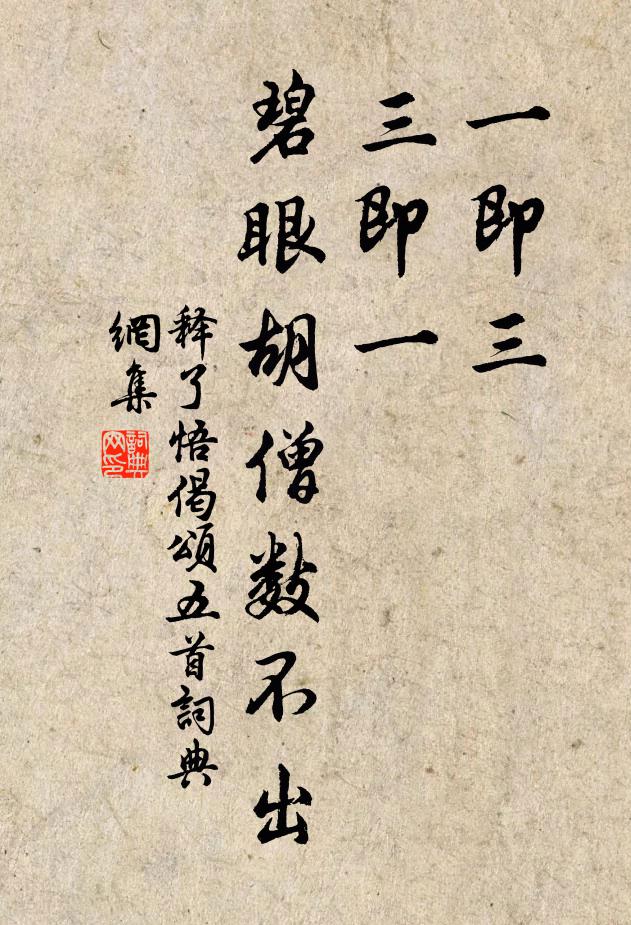 一即三
三即一
碧眼胡僧数不出
释了悟偈頌五首詞典
網集
詞典
网印